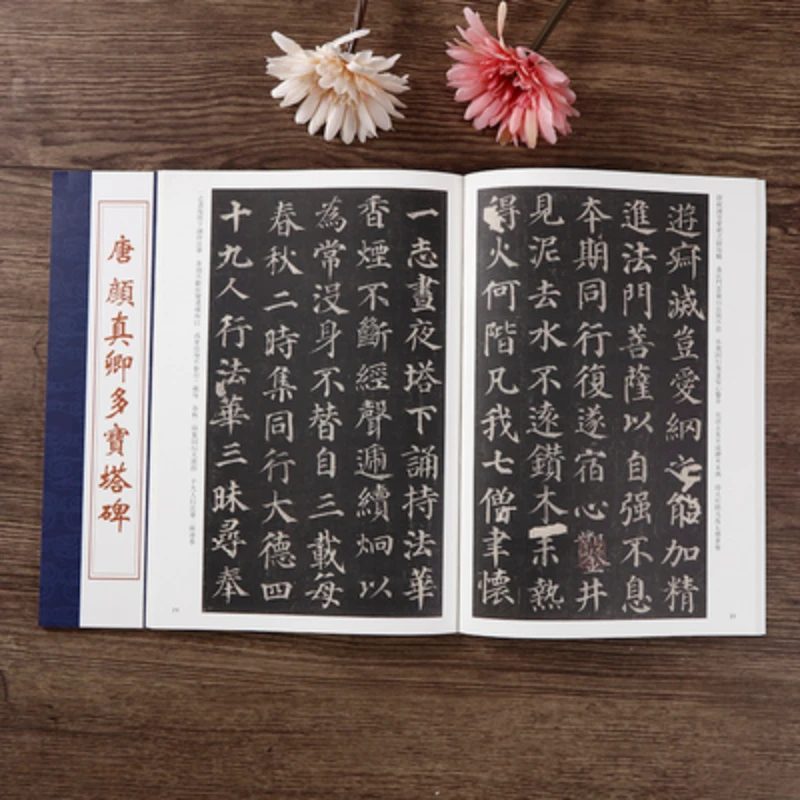 唐 顏真卿多寶塔碑
遊寂滅豈愛網之能加精
進法門菩薩以自强不息
夲期同行復遂宿心鑿井
見泥去水不遠鑽木未熱
得火何階凡我七僧聿懷
一志晝夜塔下誦持法華
香煙不斷經聲遞續炯以
為常没身不替自三載每
春秋二時集同行大德四
十九人行法華三昧尋奉